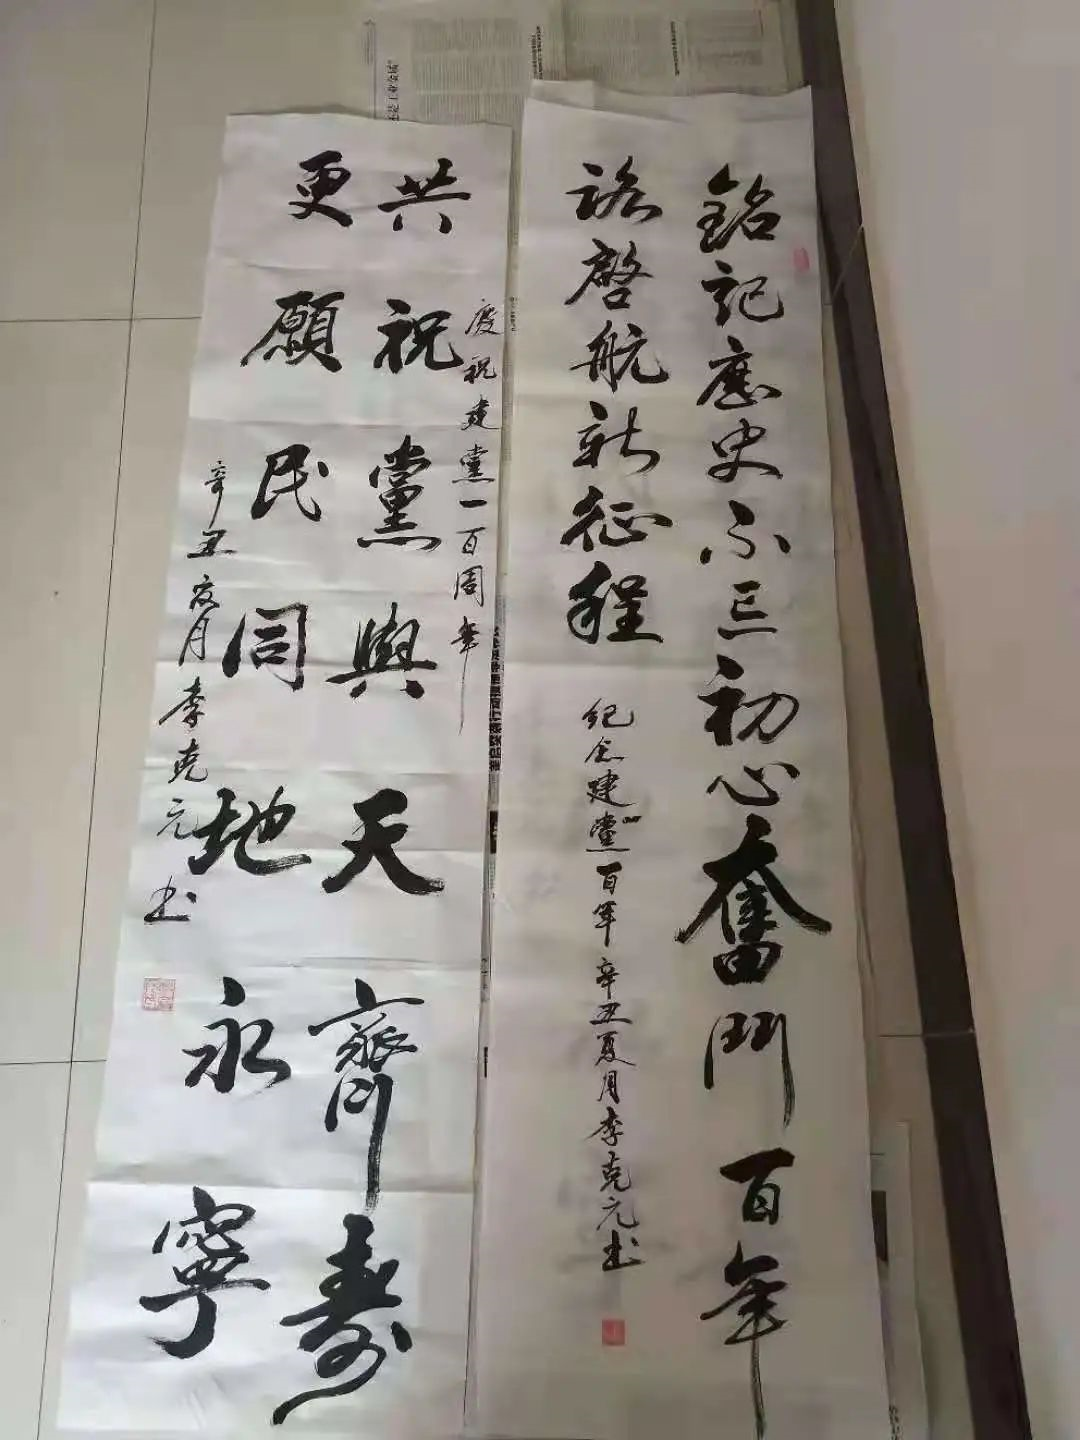 銘記歷史不忘初心奮鬥百年
路啓航新征程
纪念建党百年辛丑夏月李克元书
慶祝建黨一百周年
共祝黨與天齊壽
更願民同地永寧
辛丑夏月李克元书